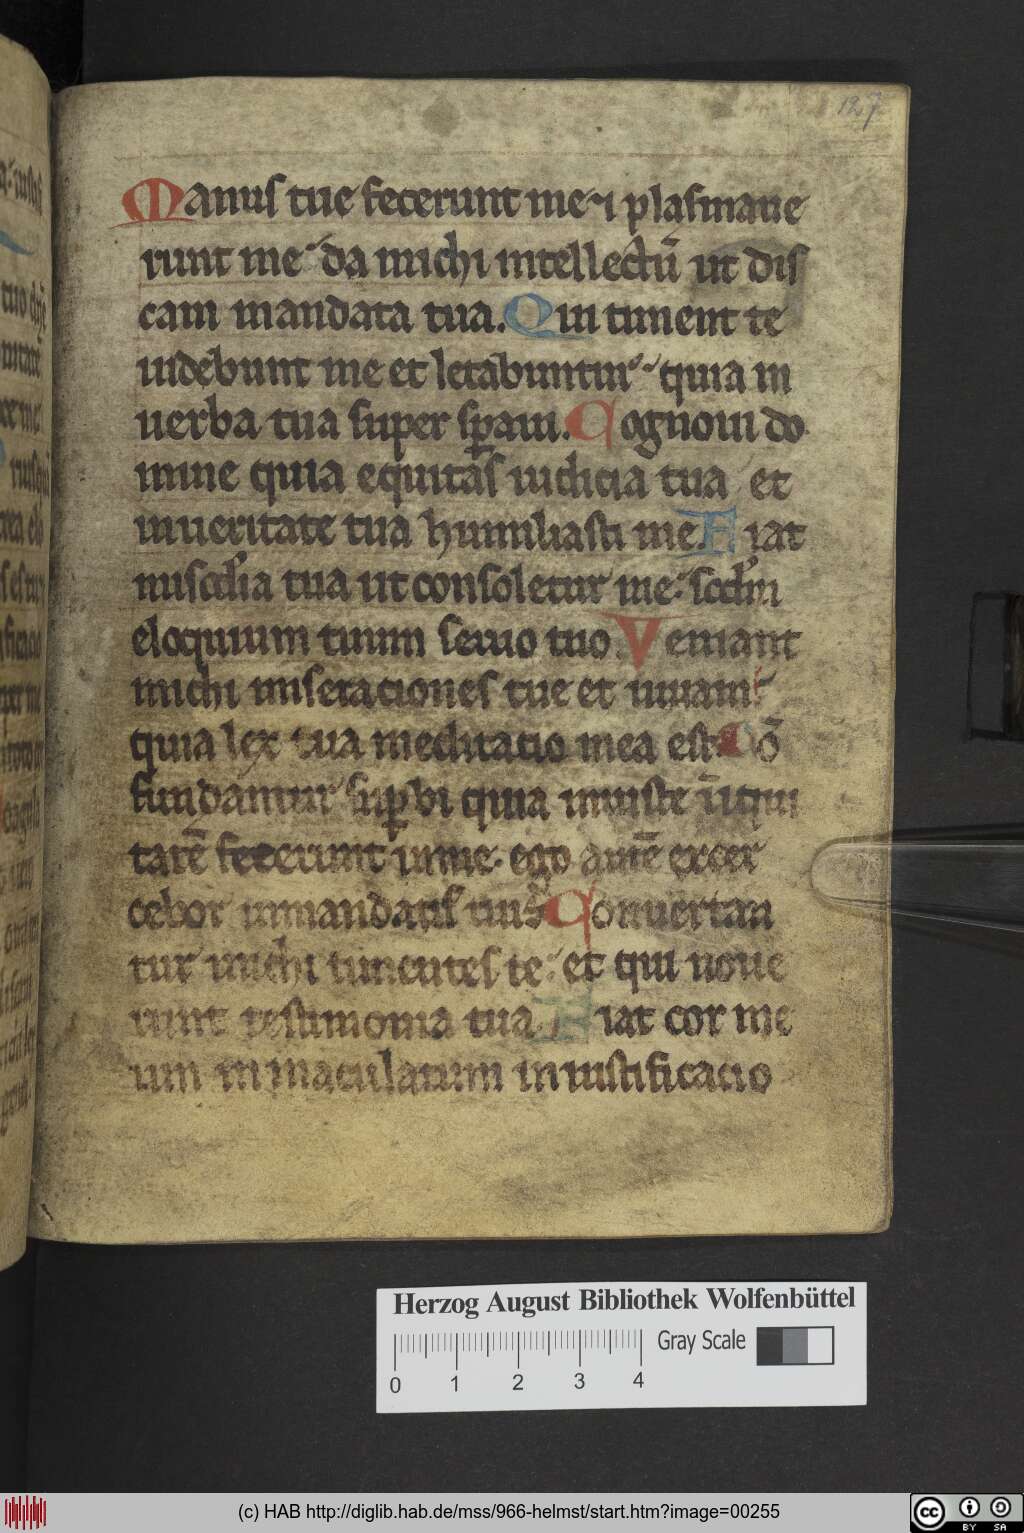 127
Manus tue fecerunt me ⁊ plasmaue
runt me da michi intellectū ut dis
cam mandata tua. Qui timent te
uidebunt me et letabuntur quia in
uerba tua super sꝑaui. Cognoui do
mine quia equitas iudicia tua et
inueritate tua humiliasti me. Fiat
miscd'ia tua ut consoletur me scd'm
eloquium tuum seruo tuo. Veniant
michi miseraciones tue et uiuam
quia lex tua meditacio mea est. Cō
fundantur suꝑbi quia iniuste īiqui
tatē fecerunt inme. ego autē excer
cebor inmandatis tuis. Conuertan
tur michi timentes te et qui noue
runt testimonia tua. Fiat cor me
um inmaculatum iniustificacio
Herzog August Bibliothek Wolfenbüttel
Gray Scale
0 1 2 3 4
(c) HAB http://diglib.hab.de/mss/966-helmst/start.htm?image=00255
cc BY SA